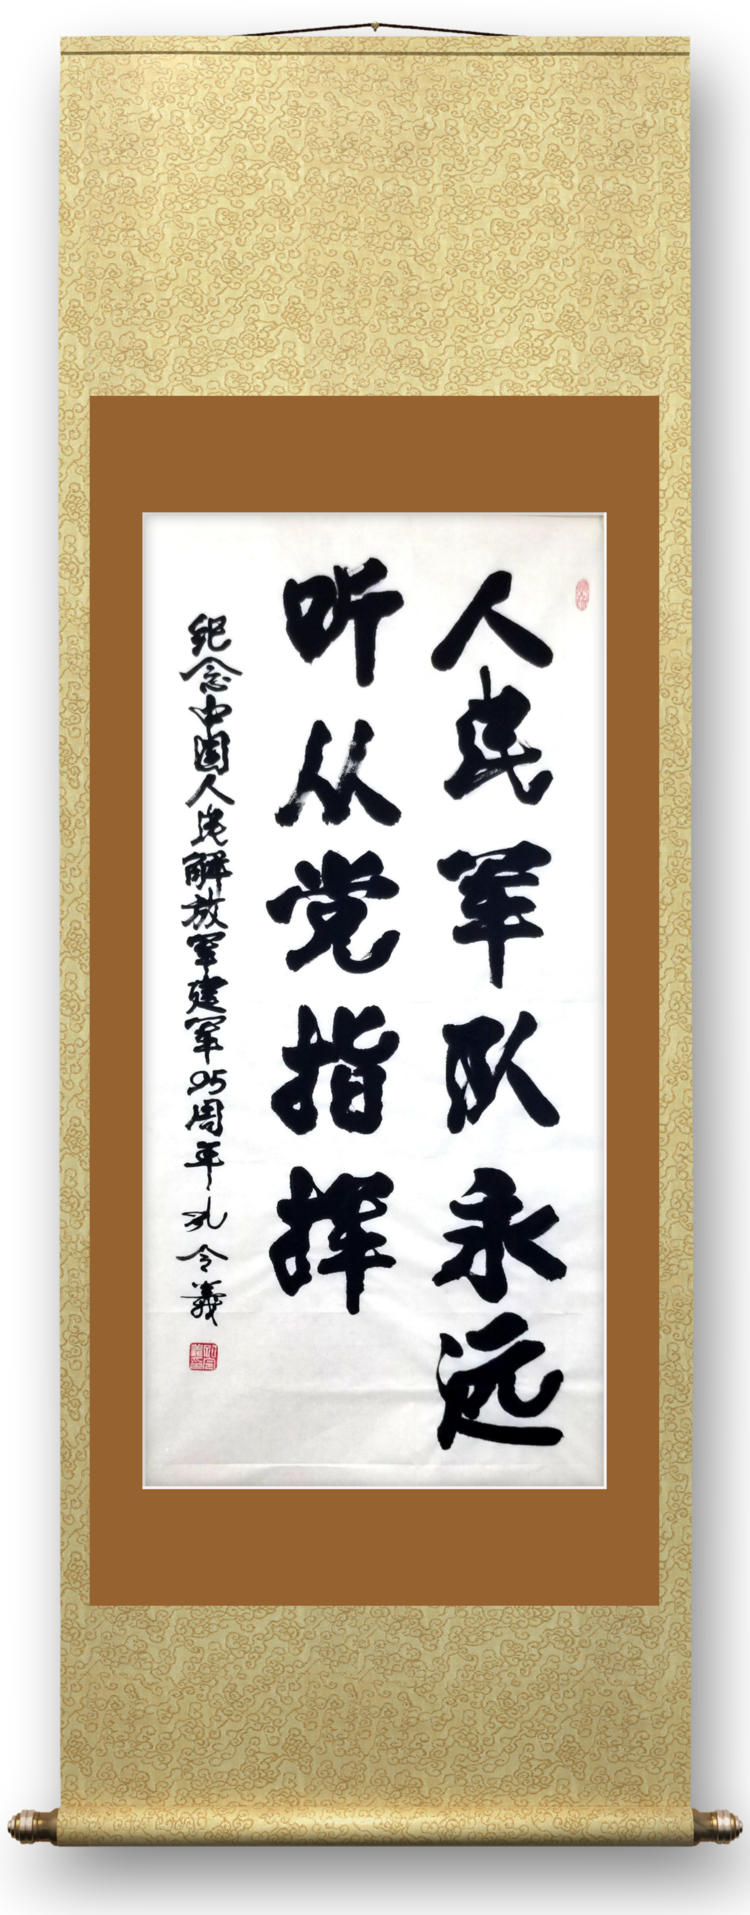 人民军队永远
听从党指挥
纪念中国人民解放军建军95周年孔令義